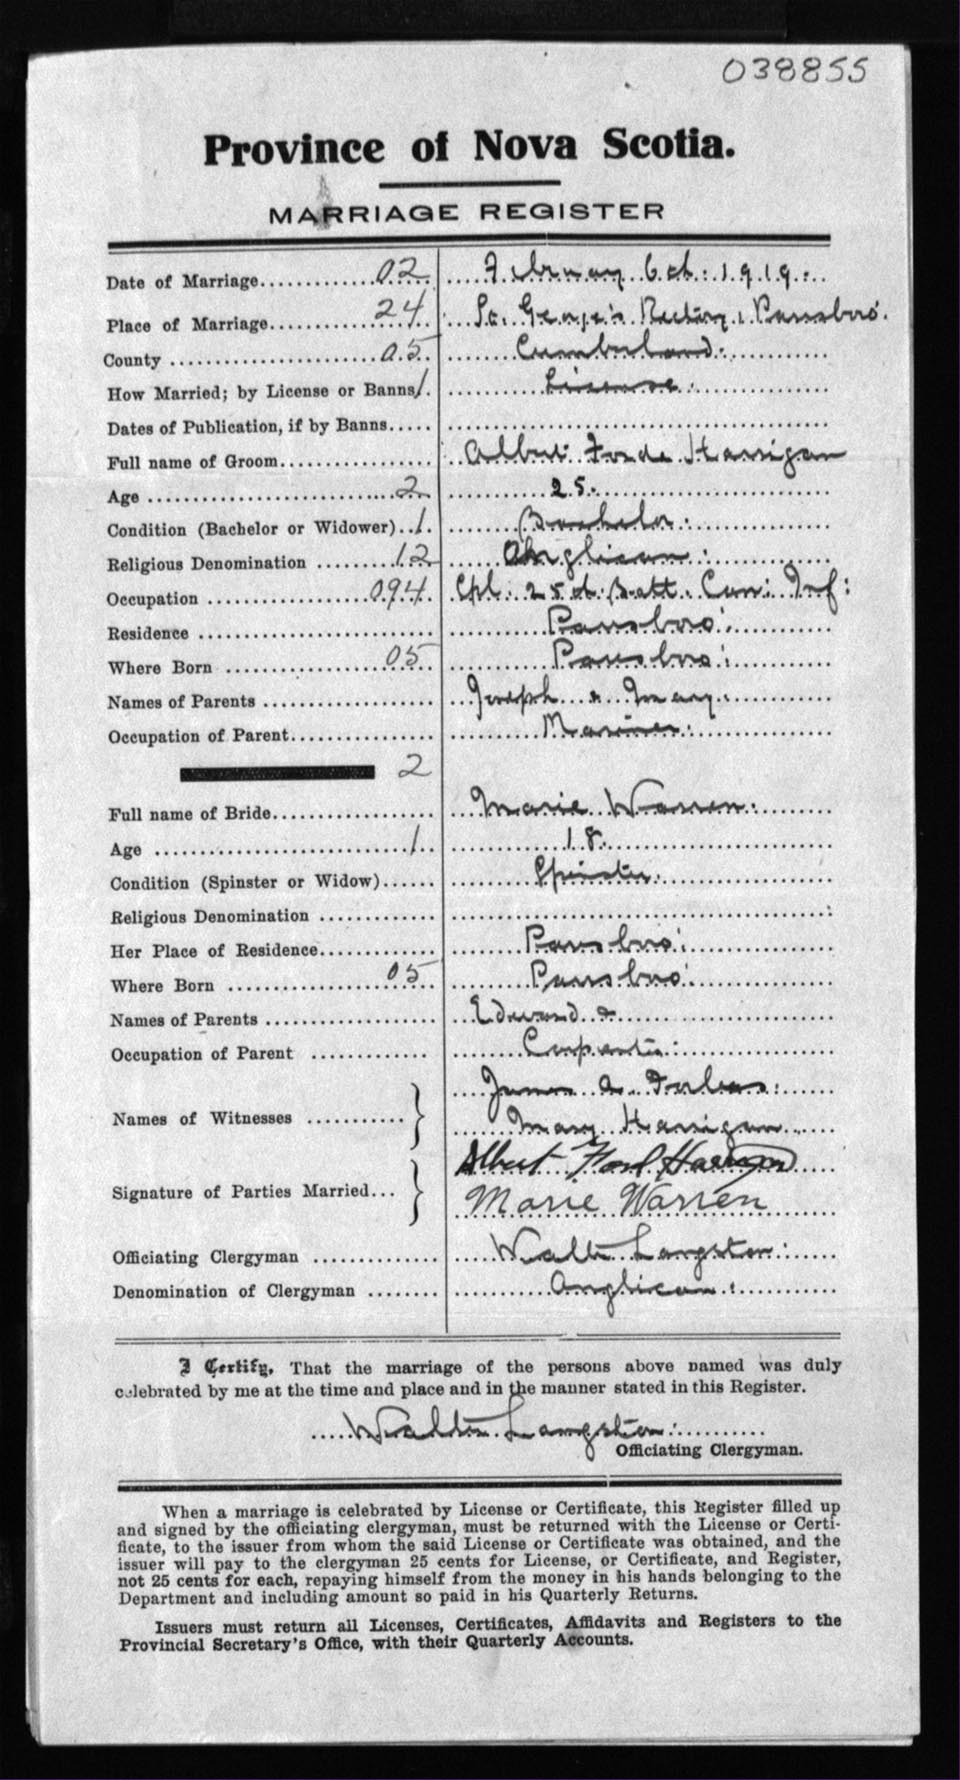 038855
Province of Nova Scotia.
MARRIAGE REGISTER
Date of Marriage 02 February 6th: 1919.
Place of Marriage 24 St. George's Rectory, Parrsboro'.
County 05 Cumberland.
How Married; by License or Banns 1. License.
Dates of Publication, if by Banns
Full name of Groom Albert Forde Harrigan
Age 2 25.
Condition (Bachelor or Widower) 1. Bachelor.
Religious Denomination 12 Anglican:
Occupation 094 Cpl. 25th Batt. Can: Inf:
Residence Parrsboro'.
Where Born 05 Parrsboro':
Names of Parents Joseph & Mary.
Occupation of Parent Mariner.
2
Full name of Bride Marie Warren.
Age 1 18.
Condition (Spinster or Widow) Spinster.
Religious Denomination
Her Place of Residence Parrsboro'.
Where Born 05 Parrsboro'
Names of Parents Edward &
Occupation of Parent Carpenter:
Names of Witnesses James A. Forbes.
Mary Harrigan
Signature of Parties Married Albert Ford Harrigan
Marie Warren
Officiating Clergyman Walter Langston:
Denomination of Clergyman Anglican:
I Certify, That the marriage of the persons above named was duly
celebrated by me at the time and place and in the manner stated in this Register.
Walter Langston:
Officiating Clergyman.
When a marriage is celebrated by License or Certificate, this Register filled up
and signed by the officiating clergyman, must be returned with the License or Certi-
ficate, to the issuer from whom the said License or Certificate was obtained, and the
issuer will pay to the clergyman 25 cents for License, or Certificate, and Register,
not 25 cents for each, repaying himself from the money in his hands belonging to the
Department and including amount so paid in his Quarterly Returns.
Issuers must return all Licenses, Certificates, Affidavits and Registers to the
Provincial Secretary's Office, with their Quarterly Accounts.